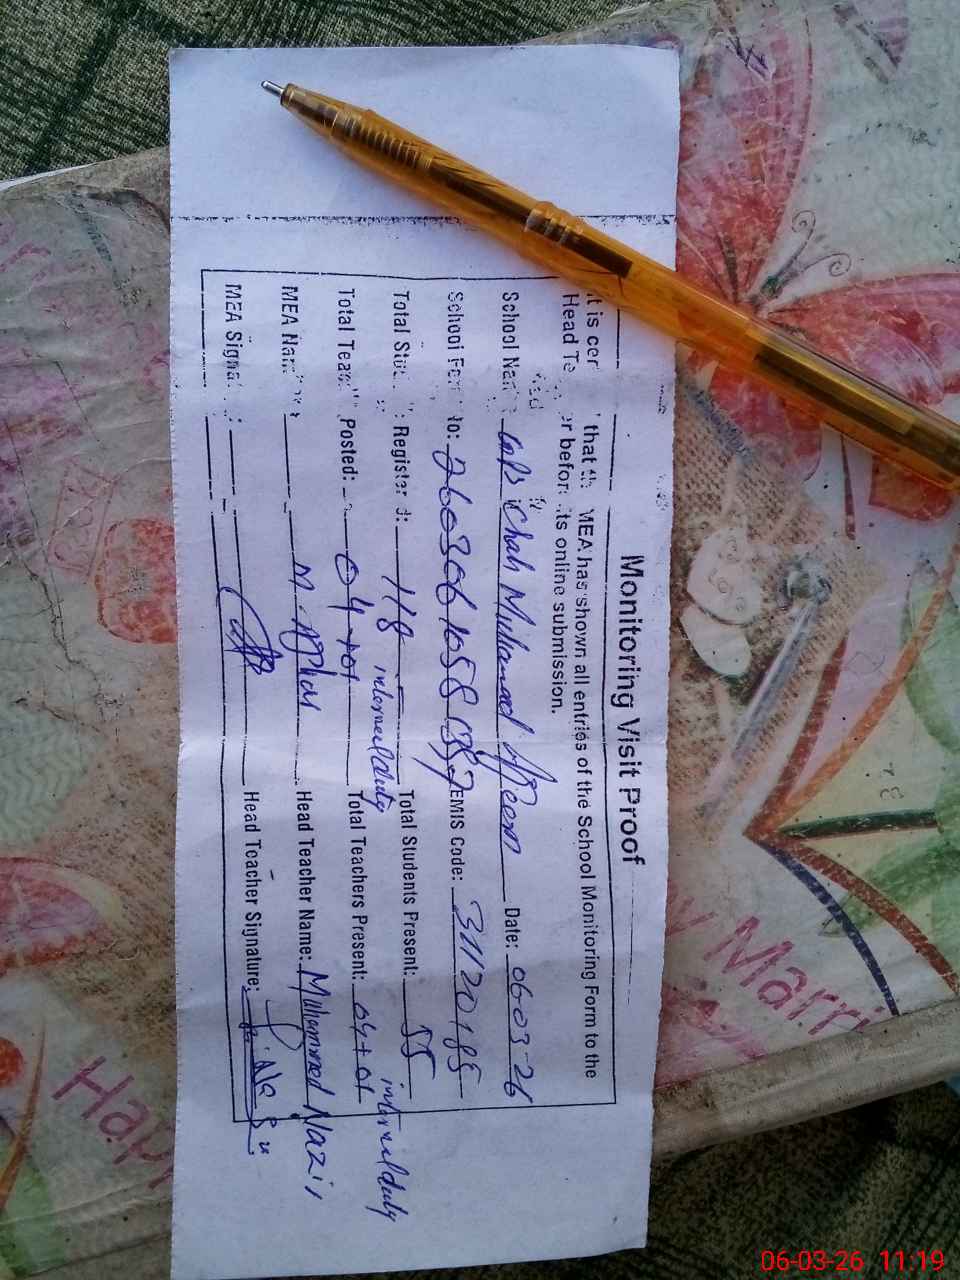 Monitoring Visit Proof
it is cer that the MEA has shown all entries of the School Monitoring Form to the
Head Te er before its online submission.
School Name GBPS Chah Muhammad Date: 06-03-26
School Form No: 2603061058 EMIS Code: 31120185
Total Stu Registered: 118 Total Students Present: 55
Total Teac Posted: 04+01 internal duty Total Teachers Present: 04+01 internal duty
MEA Name M. Head Teacher Name: Muhammad Nazir
MEA Signa Head Teacher Signature:
Happy Marri
06-03-26 11:19